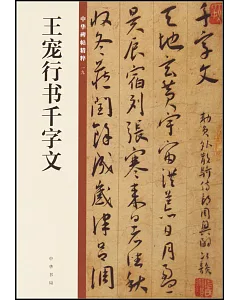 王宠行书千字文
中华碑帖精粹
中华书局
千字文
勅員外散騎侍郎周興嗣次韻
天地玄黄宇宙洪荒日月盈
昃辰宿列張寒来暑往秋
收冬藏閏餘成歲律吕調